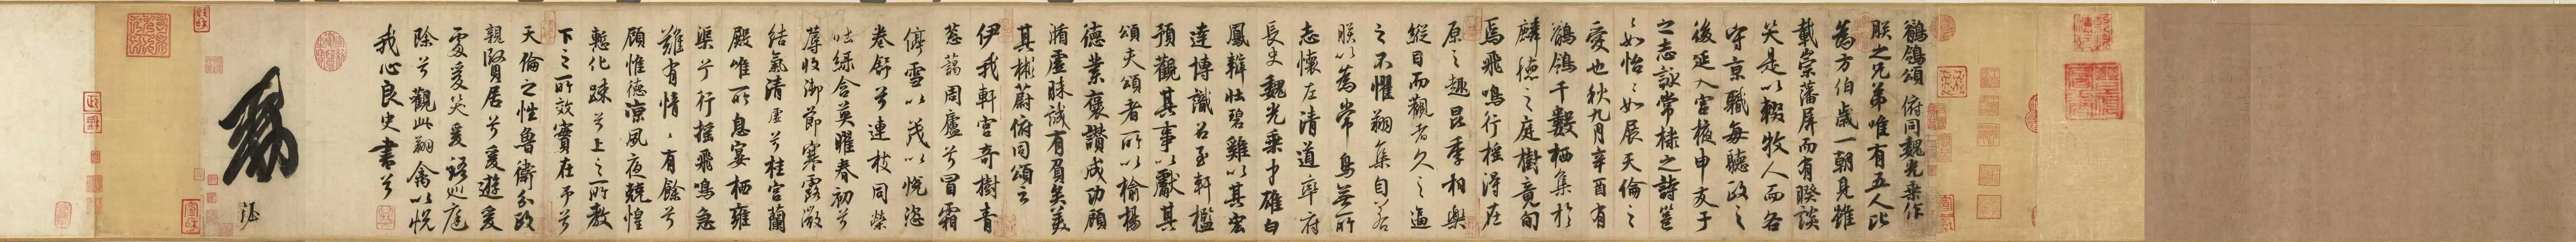 鶺鴒頌 俯同魏光乘作
朕之兄弟唯有五人比
為方伯歲一朝見雖
載崇藩屏而有睽談
笑是以輟牧人而各
守京職每聽政之
後延入宮掖申友于
之志詠常棣之詩邕
〻如怡〻如展天倫之
愛也秋九月辛酉有
鶺鴒千數栖集於
麟德之庭樹竟旬
焉飛鳴行搖得在
原之趣昆季相樂
縱目而觀者久之逼
之不懼翔集自若
朕以為常鳥無所
志懷左清道率府
長史魏光乘才雄白
鳳辯壯碧雞以其宏
達博識召至軒檻
預觀其事以獻其
頌夫頌者所以揄揚
德業褒讚成功顧
循虛昧誠有負矣美
其彬蔚俯同頌云
伊我軒宮奇樹青
蔥藹周廬兮冒霜
停雪以茂以悅恣
卷舒兮連枝同榮
吐綠含英曜春初兮
蓐收御節寒露微
結氣清虛兮桂宮蘭
殿唯所息宴栖雍
渠兮行搖飛鳴急
難有情〻有餘兮
顧惟德涼夙夜兢惶
慙化踈兮上之所教
下之所效實在予兮
天倫之性魯衛分政
親賢居兮爰遊爰
處爰笑爰語巡庭
除兮觀此翔禽以悅
我心良史書兮
勅